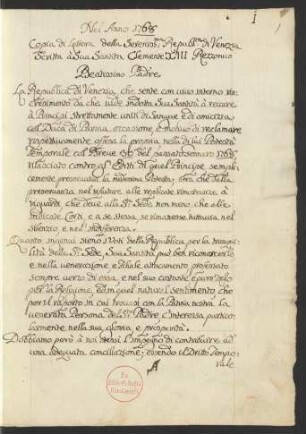 Nel Anno 1768
Copia di Lettera della Serenis.ma Repubb.ca di Venezia
Scritta a Sua Santità Clemente XIII Rezzonico
Beatissimo Padre
La Repubblica di Venezia, che sente con vivo interno rin-
crescimento da che vide indotta Sua Santità a recare
a Principi strettamente uniti di Sangue e di amicizia
col Duca di Parma, occasione, e motivo di reclamare
rispettivamente offesa la propria nella di lui Potestà
Temporale col Breve 30 del passato Gennaro 1768
rilasciato contro gli Editti di quel Principe, semplice-
mente preservativi la medesima Potestà, ora che dalla
prevenuta nel
riguardi, che deve alla S.ta Sede non meno che alle
indicate Corti, e a se stessa se rimanesse tuttavia nel
silenzio e nell'indifferenza.
Quanto ingenui sieno i Voti della Repubblica per la tranqui-
lità della S.ta Sede, Sua Santità può ben riconoscerlo
e nella venerazione e filiale attaccamento professato
sempre verso di essa, e nel suo costante e puro zelo
per la Religione, ed in quel natural sentimento, che
per il rapporto in cui trovasi con la Patria nostra la
venerata Persona del S.to Padre, s'interessa partico-
larmente nella sua gloria e prosperità.
Dobbiamo però a noi stessi l'impegno di contribuire ad
una adeguata conciliazione, essendo il Dritto Tempo-
rale